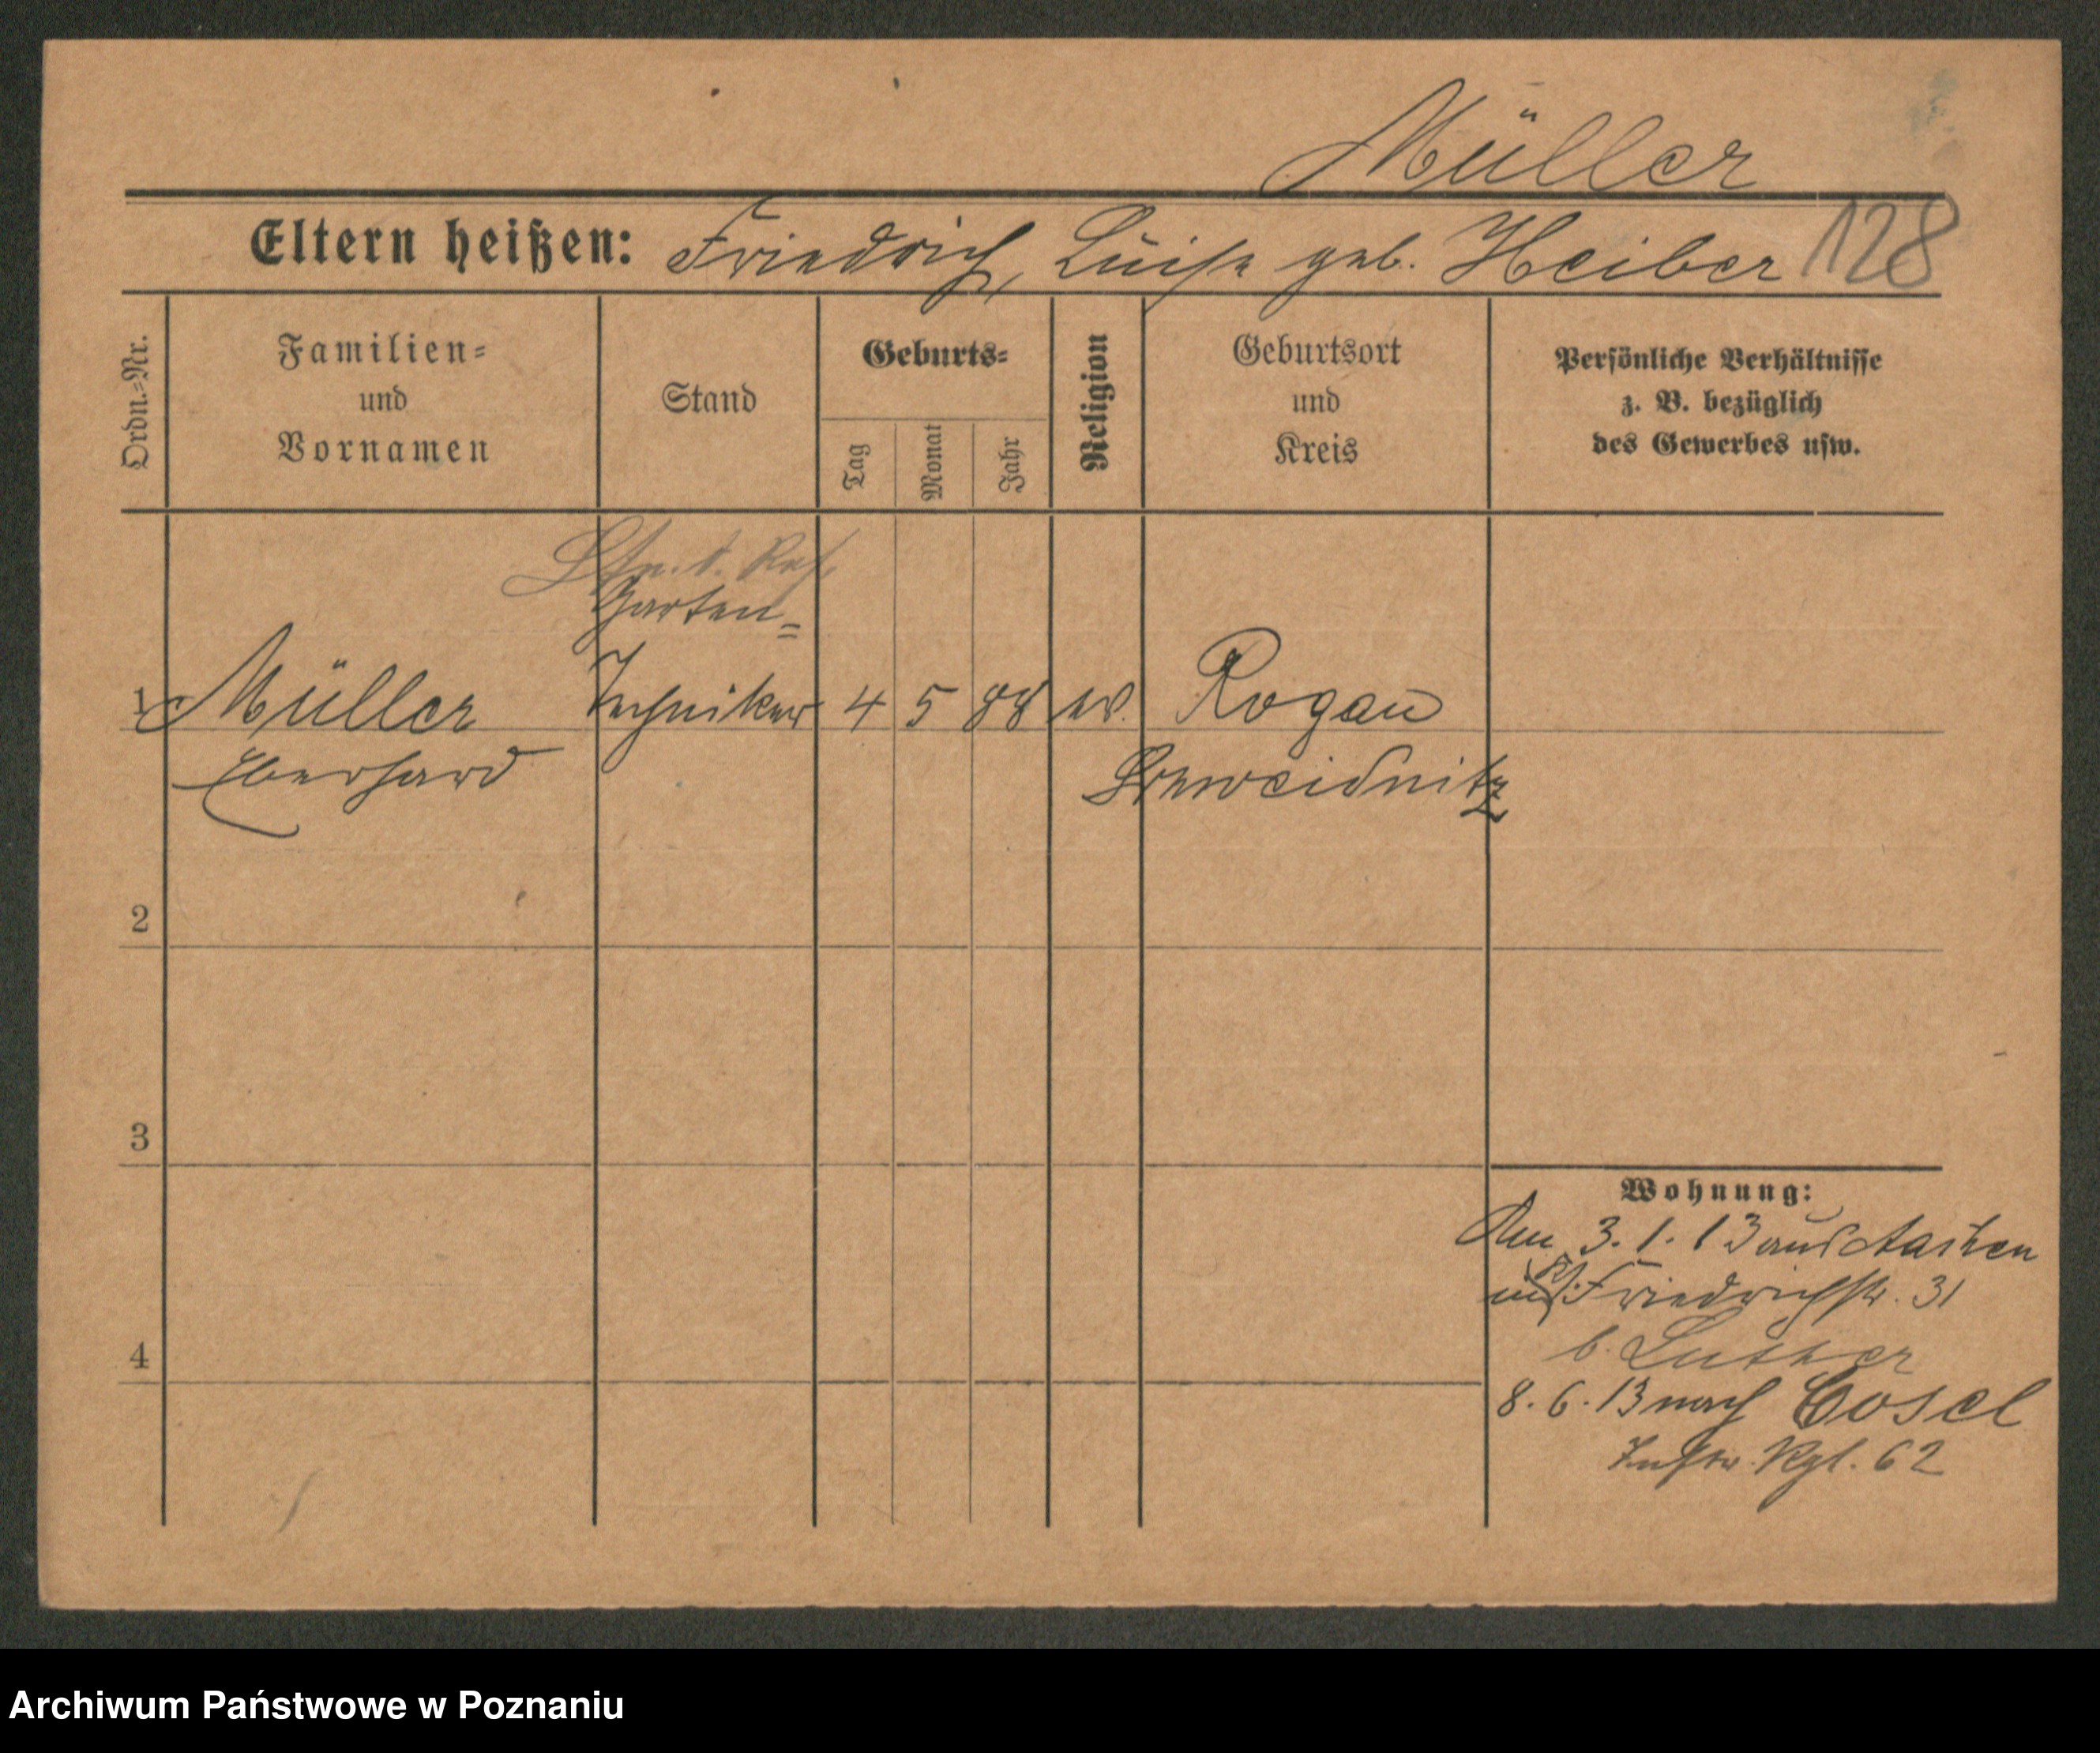 Müller
Eltern heißen: Friedrich, Luise geb. Heiber 128
Ordn.-Nr.
Familien-
und
Vornamen
Stand
Geburts-
Tag
Monat
Jahr
Religion
Geburtsort
und
Kreis
Persönliche Verhältnisse
z. B. bezüglich
des Gewerbes usw.
Ltn. d. Res.
Garten-
1 Müller Techniker 4 5 88 ev. Rogau
Eberhard Schweidnitz
2
3
4
Wohnung:
Am 3. 1. 13 aus Aachen
Friedrichstr. 31
b. Luther
8. 6. 13 nach Cosel
Inftr. Rgt. 62
Archiwum Państwowe w Poznaniu